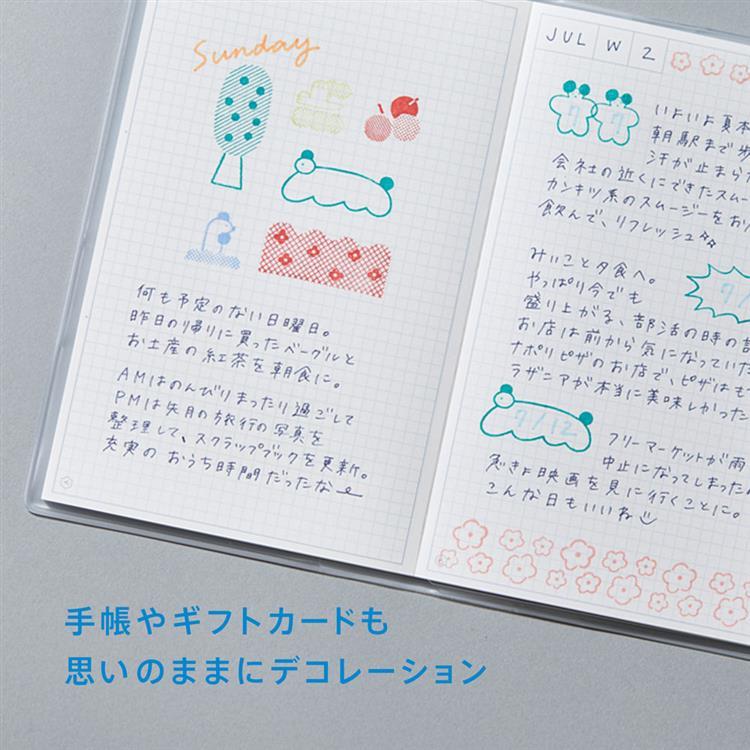 Sunday
何も予定のない日曜日。
昨日の帰りに買ったベーグルと
お土産の紅茶を朝食に。
AMはのんびりまったり過ごして
PMは先月の旅行の写真を
整理して、スクラップブックを更新。
充実の おうち時間だったな
JUL W 2
7 7
いよいよ夏本
朝駅まで歩
汗が止まらな
会社の近くにできたスムー
カンキツ系のスムージーをお
飲んで、リフレッシュ
みいこと夕食へ。
やっぱり今でも
盛り上がる、部活の時の話
お店は前から気になっていた
ナポリピザのお店で、ピザはも
ラザニアが本当に美味しかった
7/
7/12
フリーマーケットが雨
中止になってしまった
急きょ映画を見に行くことに。
こんな日もいいね
手帳やギフトカードも
思いのままにデコレーション